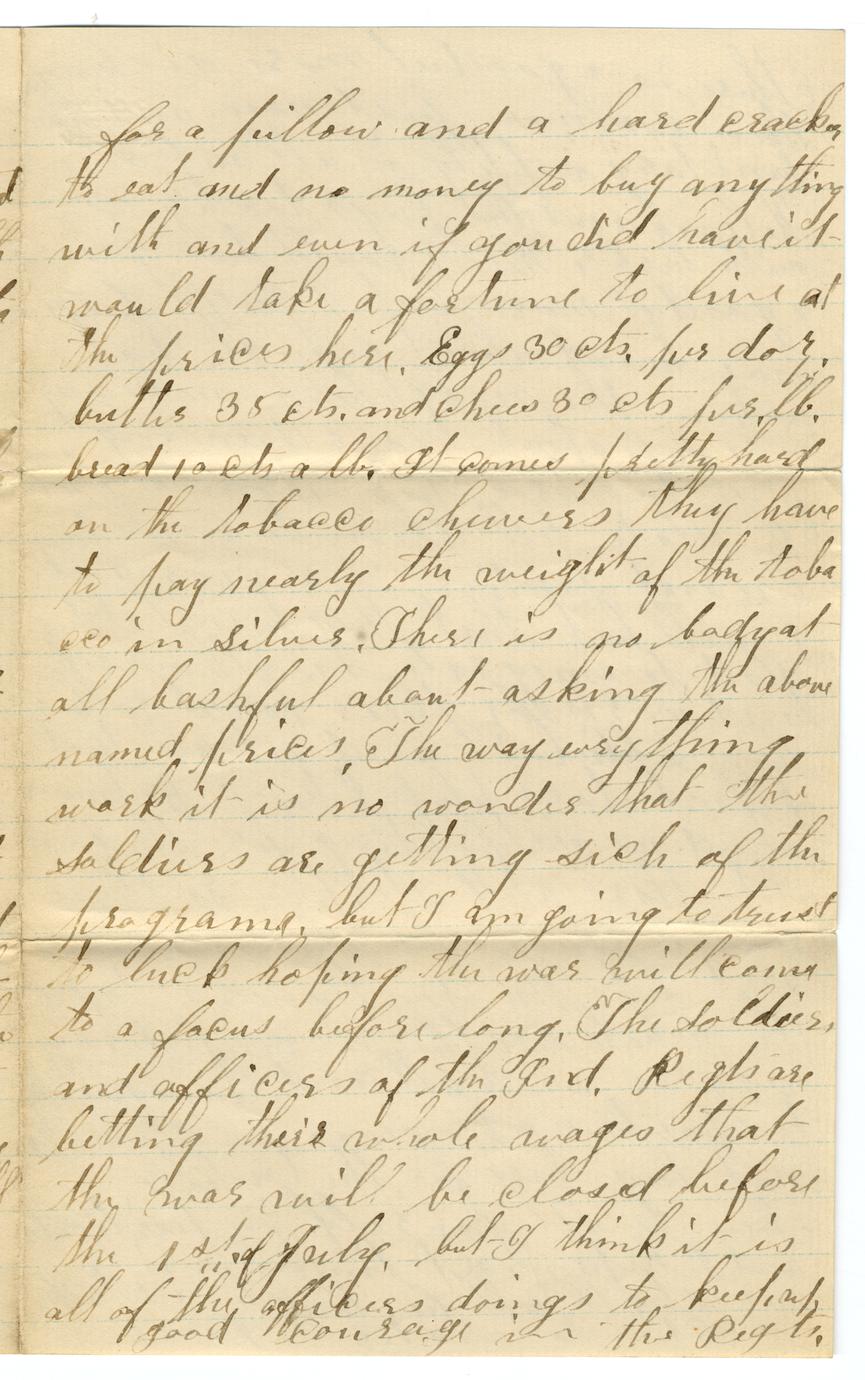 for a pillow and a hard cracker
to eat and no money to buy anything
with and even if you did have it
would take a fortune to live at
the prices here. Eggs 30 cts. per doz.
butter 35 cts. and chees 30 cts per. lb.
bread 10 cts a lb. It comes pretty hard
on the tobacco chewers they have
to pay nearly the weight of the toba
cco in silver. There is no body at
all bashful about asking the above
named prices. The way evrything
work it is no wonder that the
soldiers are getting sick of the
programe, but I am going to trust
to luck hoping the war will come
to a focus before long. The soldiers
and officers of the Ind. Regts are
betting their whole wages that
the war will be closed before
the 1st. of July, but I think it is
all of the officers doings to keep up
good courage in the Regts.